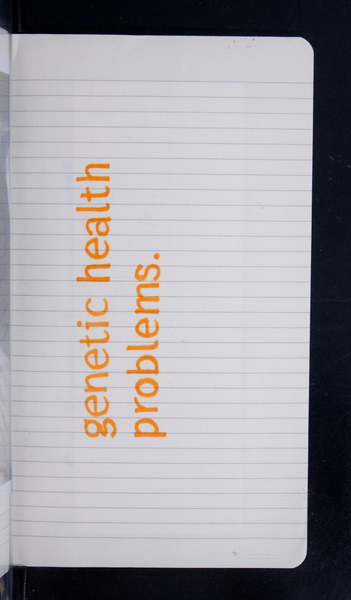 genetic health
problems.